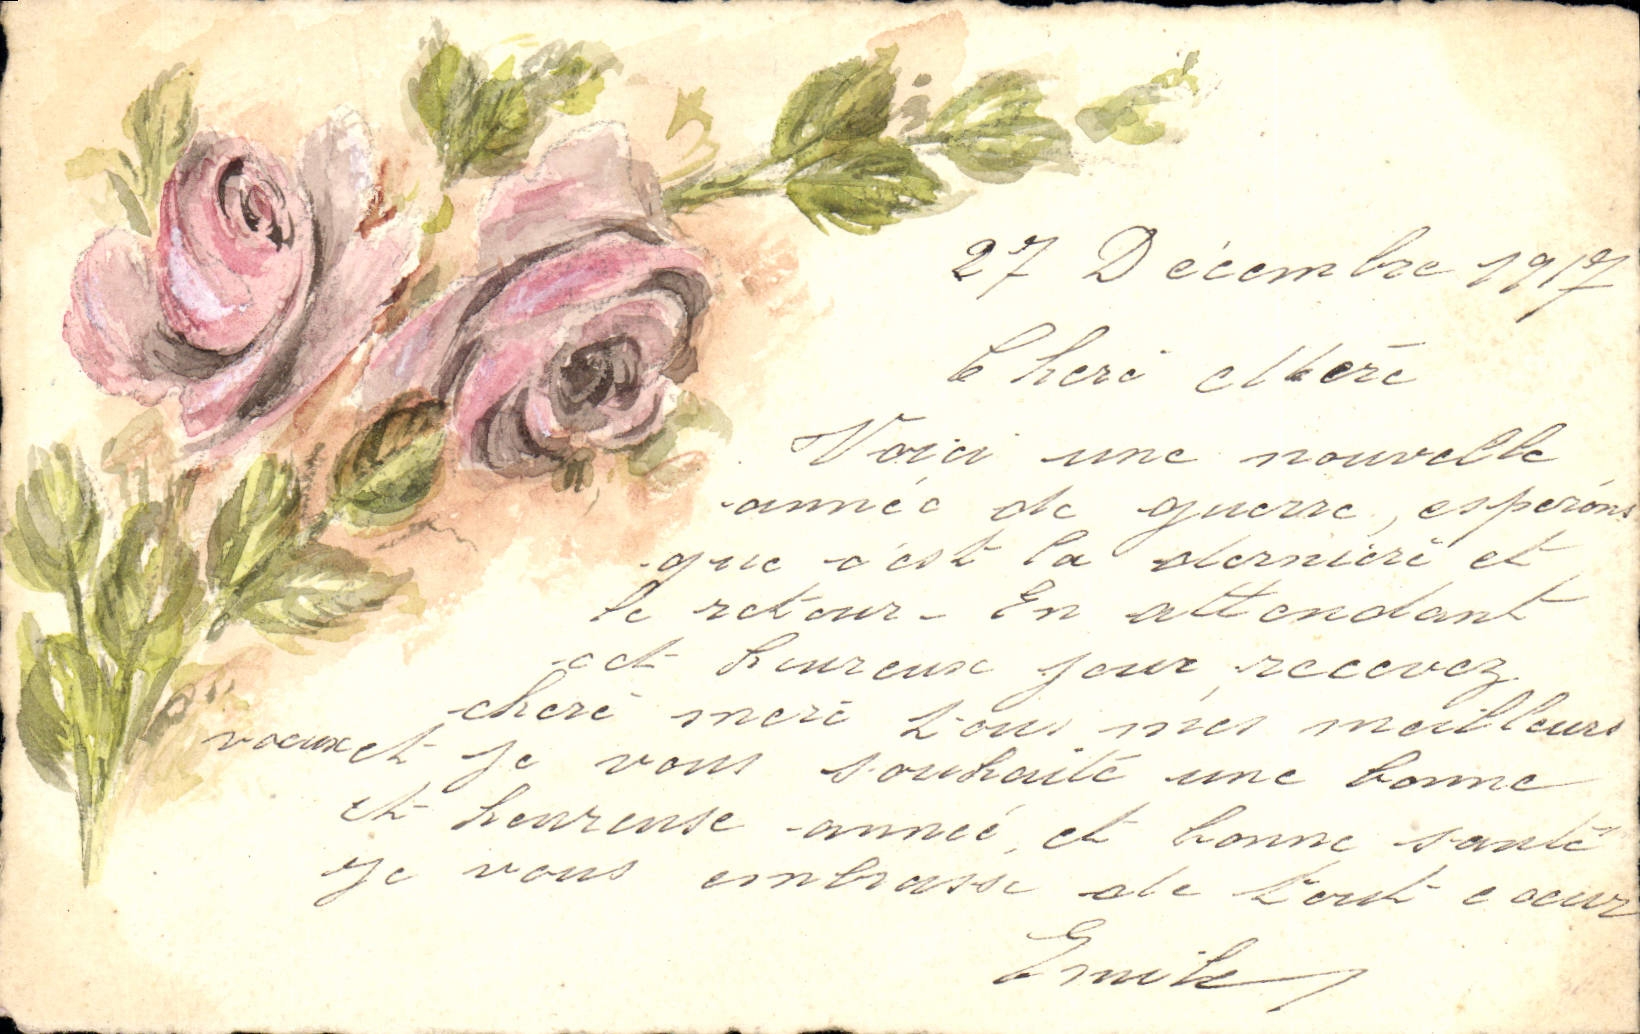 27 Décembre 1917
Cherè Merè
Voici une nouvelle
année de guerre, esperóns
que c'est la dernierè et
le retour - En attendant
cet heureux jour recevez
cherè merè tous mes meilleurs
voeux et je vous souhaité une bonne
et heureuse année, et bonne santé
Je vous embrasse de tout coeur
Emile